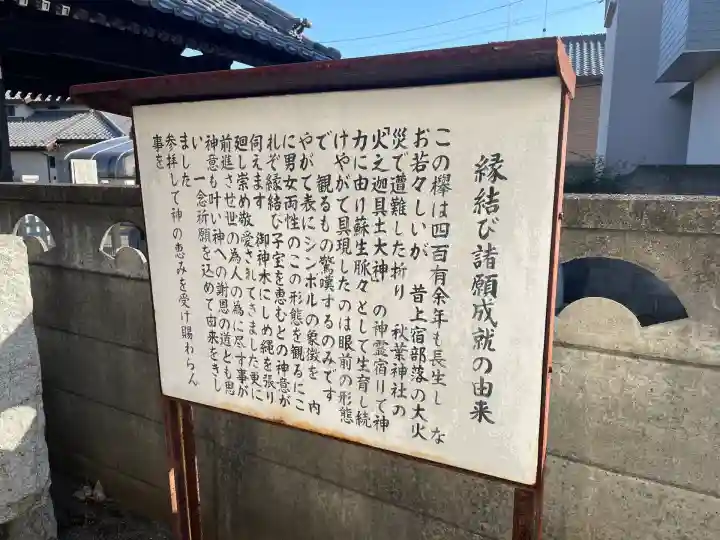 縁結び諸願成就の由来
この欅は四百有余年も長生し な
お若々しいが 昔上宿部落の大火
災で遭難した折り 秋葉神社の
「火之迦具土大神」の神霊宿りて神
力に由け蘇生脈々として生育し続
けやがて具現したのは眼前の形態
で 観るもの驚嘆するのみです
やがて表にシンボルの象徴を 内
に男女両性のこの形態を観るにこ
れぞ縁結び子宝を恵むとの神意が
伺えます 御神木にしめ縄を張り
廻し崇め敬愛されてきました更に
前進させ世の為人の為に尽す事が
神意も叶い神への謝恩の道とも思
い 一念祈願を込めて由来をきし
ました
参拝して神の恵みを受け賜わらん
事を